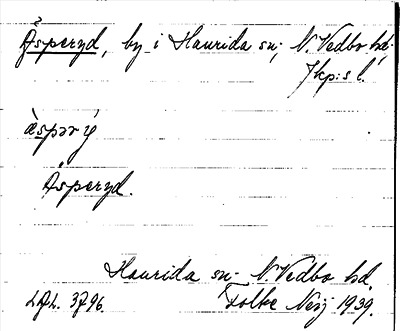 Äsperyd, by i Haurida sn; N. Vedbo hd,
Jkp:s l.
äspər y
Äsperyd.
Haurida sn. N Vedbo hd.
Folke 1939.